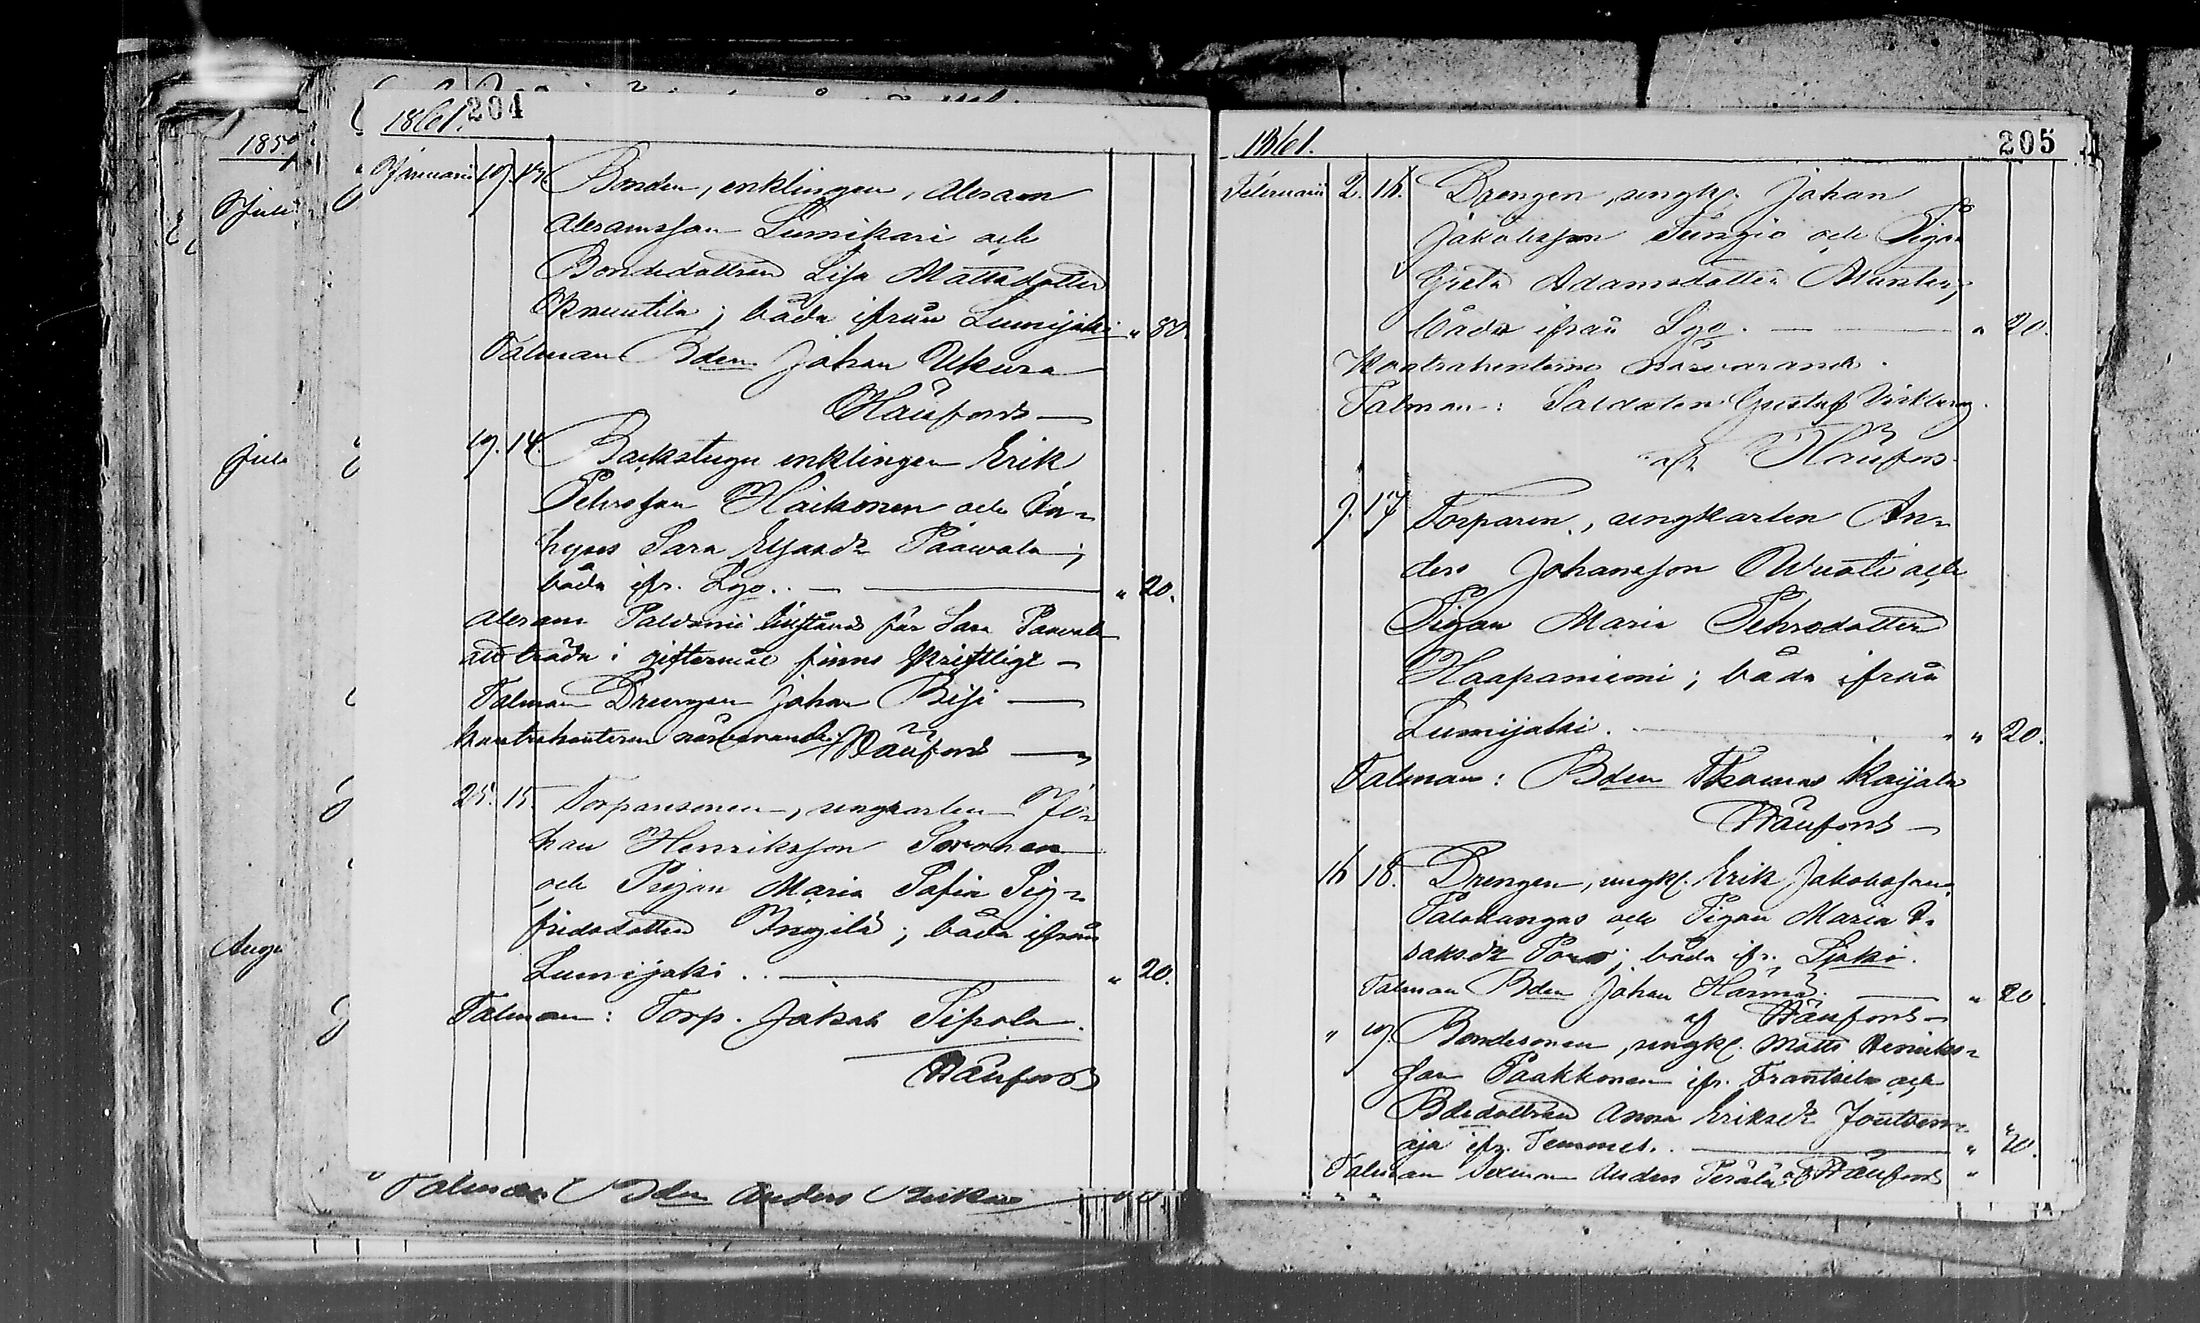 1861. 204
Januarii 19. 13. Bonden, enklingen, Abram
Abramsson Lumikari och
Bondedottren Lisa Mattsdotter
Knuutila; båda ifrån Lumijoki „ 80.
Talman Bden Johan Ukura
19. 14. Backstugu enklingen Erik
Pehrsson Haikonen och In-
hyses Sara Eljasdr Paawola;
båda ifr. Lgo. — „ 20.
Abram för Sara Paavola
att träda i giftermål finns skriftligt —
Talman Drengen Johan —
kontrahenterna närvarande.
25. 15. Torparsonen, ungkarlen Jo-
han Henriksson Soronen
och Pigan Maria Sofia Sig-
fridsdotter Ingilä; båda ifrån
Lumijoki . . — „ 20.
Talman: Torp. Jakob Sipola.
Talman Bden Anders
1859
Juli
Juli
Aug
1861. 205
Februarii 2. 16. Drengen, ungk. Johan
Jakobsson och Pigan
Greta Adamsdotter
båda ifrån Lgo. — „ 20.
Kontrahenterne närvarande.
Talman: Soldaten Gustaf
9. 17 Torparen, ungkarlen An-
ders Johansson och
Pigan Maria Pehrsdotter
Haapaniemi; båda ifrån
Lumijoki. — „ 20.
Talman: Bden Thomas
16 18. Drengen, ungk. Erik Jakobsson
Palokangas och Pigan Maria I-
saksdr båda ifr. Ljoki.
Talman Bden Johan Härmä. — „ 20.
„ 19. Bondesonen, ungk. Matts Henriks-
son Paakkonen ifr. Frantsila och
Bdedottren Anna Eriksdr Joutsen-
oja ifr. Temmes. — „ 20.
Talman Sexman Anders Perälä